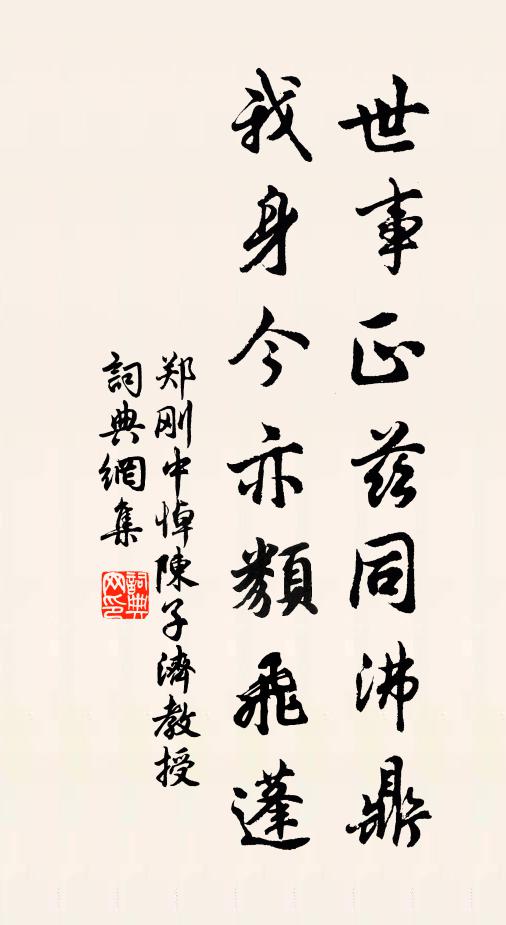 世事正茲同沸鼎
我身今亦類飛蓬
郑刚中悼陳子濟教授
詞典網集
詞典网印